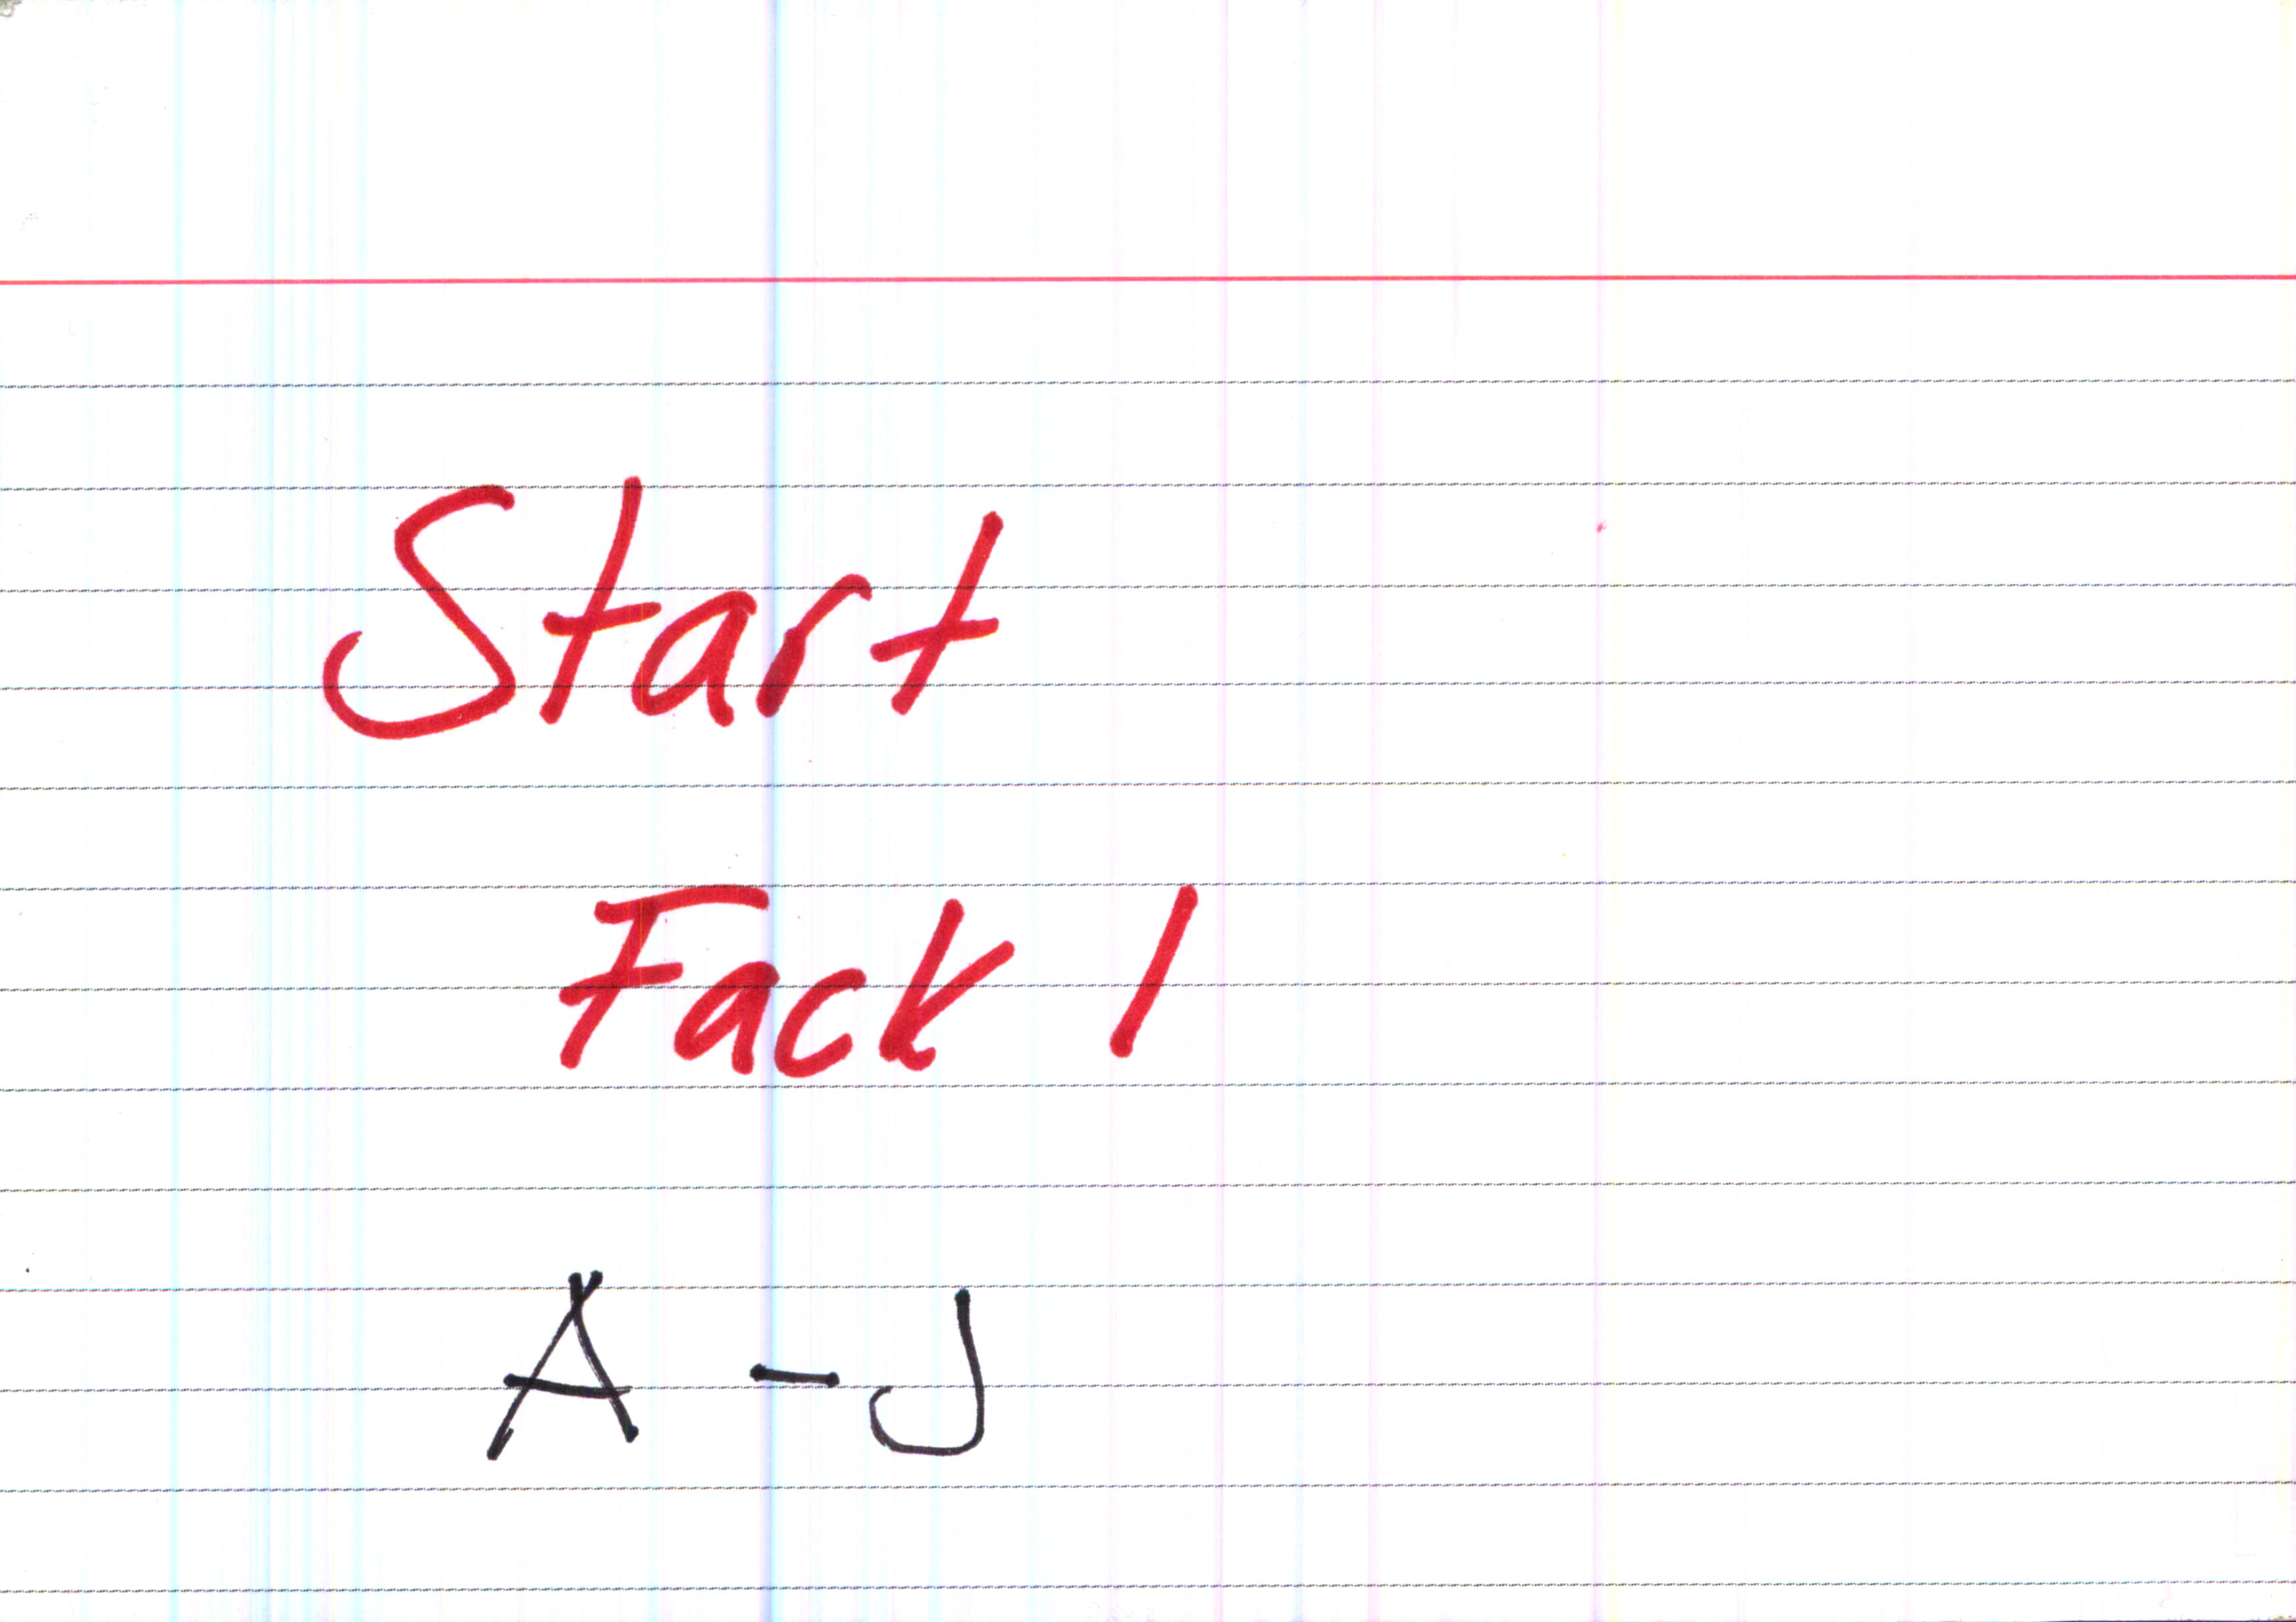 Start
Fack 1
A - J